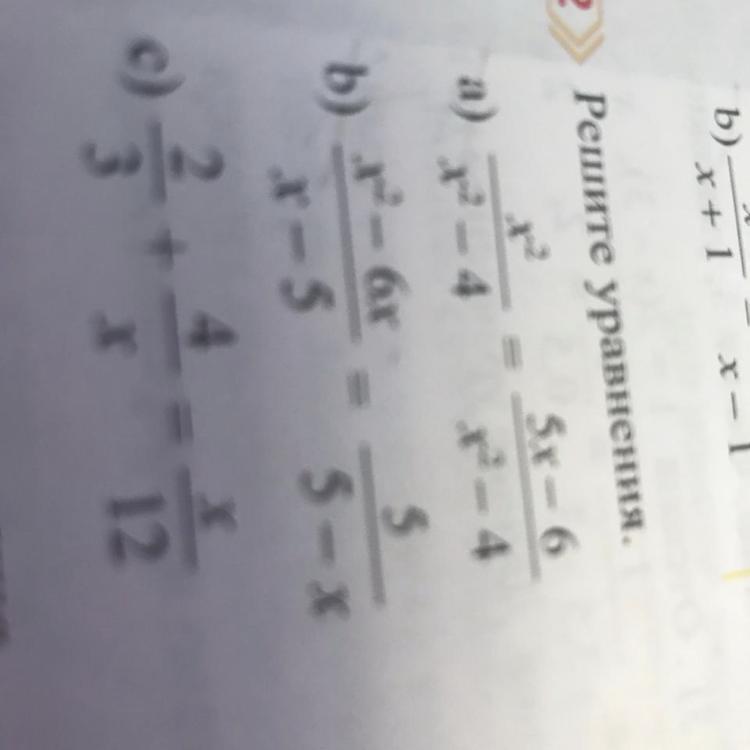 b) x/(x + 1) = /(x − 1)
2 Решите уравнения.
a) x²/(x² − 4) = (5x − 6)/(x² − 4)
b) (x² − 6x)/(x − 5) = 5/(5 − x)
c) 2/3 + 4/x = x/12